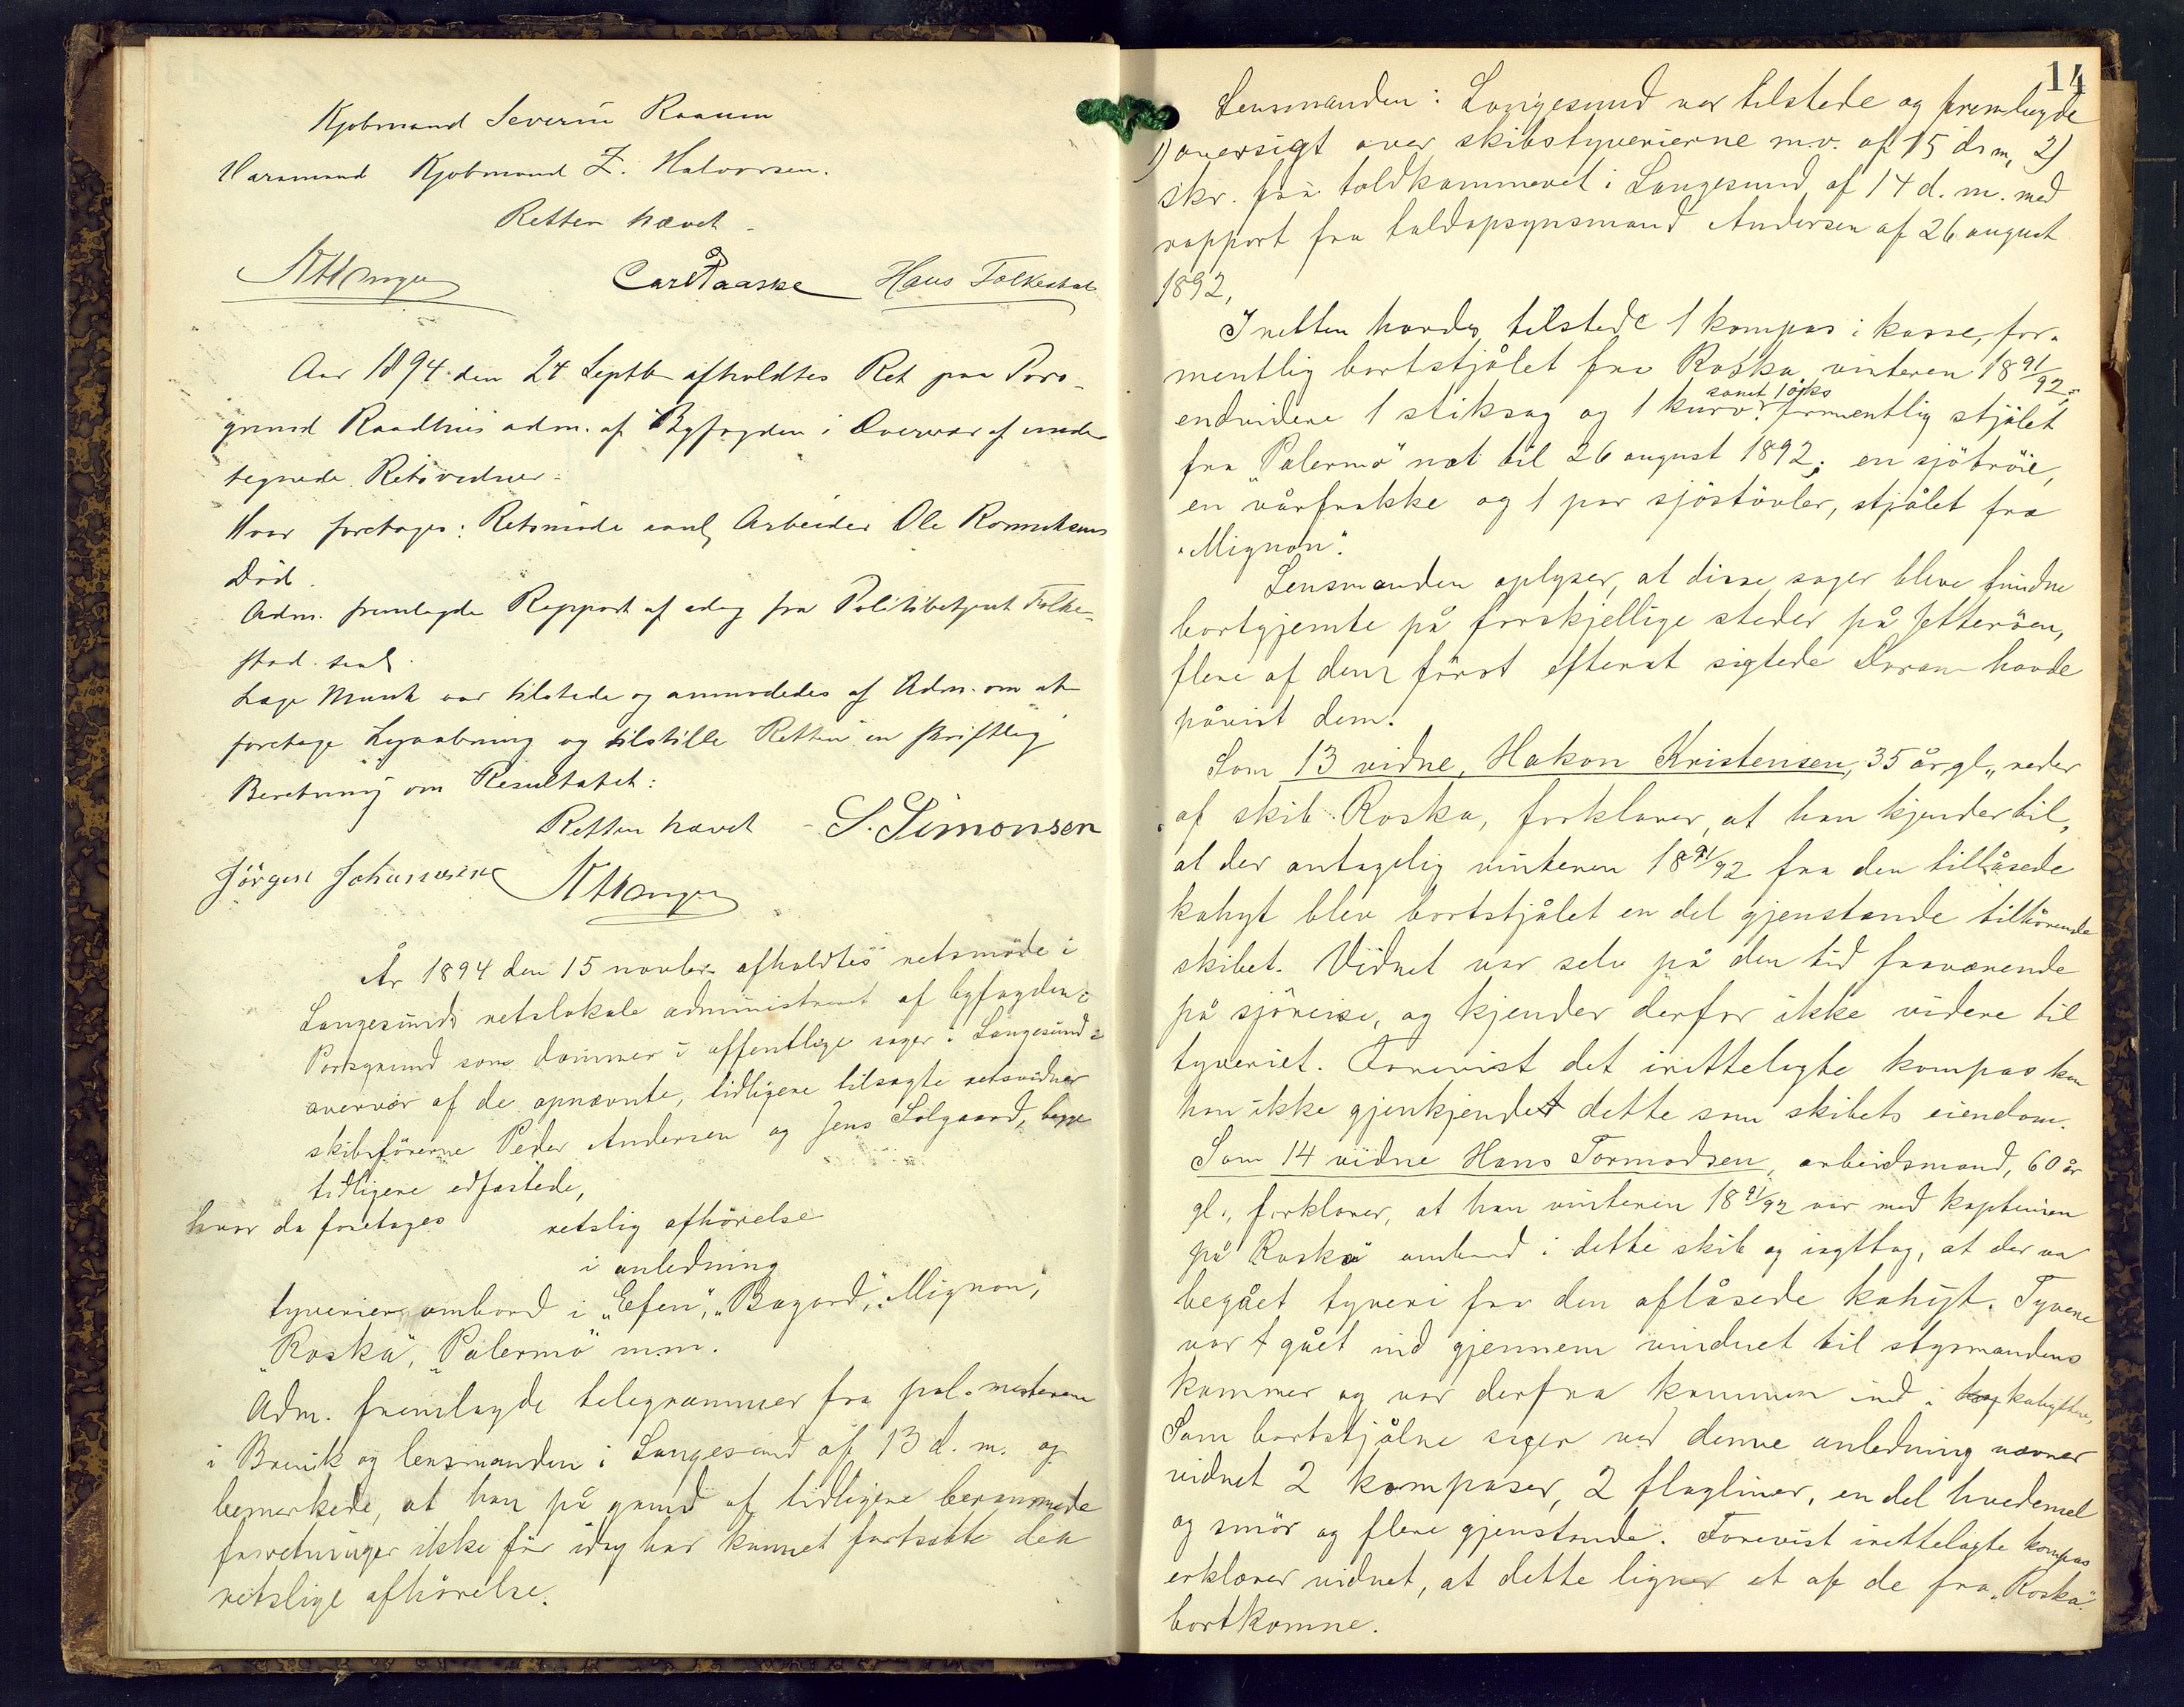 Kjøbmand Severin Raaum
Varamand Kjøbmand Z. Halvorsen.
Retten hævet.
Carl Paaske Hans Folkestad
Aar 1894 den 24 Septb afholdtes Ret paa Pors-
grund Raadhus adm. af Byfogden i Overvær af under
tegnede Retsvidner.
Hvor foretoges: Retsmøde anl. Arbeider Ole
Död.
Adm. fremlagde Rapport af idag fra Politibetjent Folke-
stad.
Læge Munk var tilstede og anmodedes af Adm. om at
foretage Ligaabning og tilstille Retten en skriftlig
Beretning om Resultatet:
Retten hævet - S. Simonsen
Jörgen Johannesen
År 1894 den 15 novbr. afholdtes retsmöde i
Langesunds retslokale administreret af byfogden i
Porsgrund som dommer i offentlige sager i Langesund i
overvær af de opnævnte, tidligere tilsagte retsvidner
skibsförerne Peder Andersen og Jens Solgaard, begge
tidligere edfæstede,
hvor da foretoges retslig afhörelse
i anledning
tyverier ombord i „Efen", „Bagard", „Mignon",
„Roska", „Palermo" m.m.
Adm. fremlagde telegrammer fra pol.mesteren
i Brevik og lensmanden i Langesund af 13 d. m. og
bemærkede, at han på grund af tidligere berammede
forretninger ikke för idag har kunnet fortsætte den
retslige afhörelse.
14
Lensmanden i Langesund var tilstede og fremlagde
1) oversigt over skibstyverierne m.v. af 15 ds m, 2)
skr. fra toldkammeret i Langesund af 14 d. m. med
rapport fra toldopsynsmand Andersen af 26 august
1892,
I retten havdes tilstede 1 kompas i kasse, for-
mentlig bortstjålet fra Roska vinteren 18 91/92;
endvidere 1 stiksag og 1 kurv samt 1 öks formentlig stjålet
fra „Palermo" nat til 26 august 1892; en sjötröie,
en vårfrakke og 1 par sjöstövler, stjålet fra
„Mignon".
Lensmanden oplyser, at disse sager bleve fundne
bortgjemte på forskjellige steder på Jetteröen,
flere af dem först efterat sigtede Doran havde
påvist dem.
Som 13 vidne, Hakon Kristensen, 35 år gl., reder
af skib Roska, forklarer, at han kjender til,
at der antagelig vinteren 18 91/92 fra den tillåsede
kahyt blev bortstjålet en del gjenstande tilhörende
skibet. Vidnet var selv på den tid fraværende
på sjöreise, og kjender derfor ikke videre til
tyveriet. Forevist det irettelagte kompas kan
han ikke gjenkjende dette som skibets eiendom.
Som 14 vidne Hans Tormodsen, arbeidsmand, 60 år
gl., forklarer, at han vinteren 18 91/92 var med kapteinen
på „Roska" ombord i dette skib og iagttog, at der var
begået tyveri fra den aflåsede kahyt. Tyvene
var gået ind gjennem vinduet til styrmandens
kammer og var derfra kommen ind i kahytten,
Som bortstjålne sager ved denne anledning nævner
vidnet 2 kompaser, 2 flagliner, en del hvedemel
og smör og flere gjenstande. Forevist irettelagte kompas
erklærer vidnet, at dette ligner et af de fra „Roska"
bortkomne.